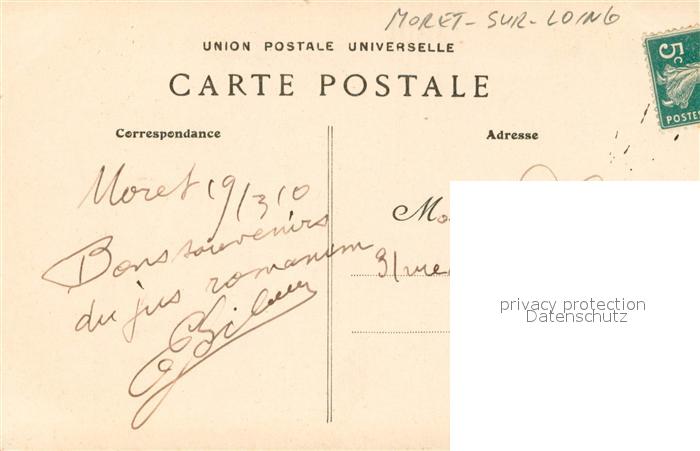 MORET-SUR-LOING
UNION POSTALE UNIVERSELLE
CARTE POSTALE
5c
POSTES
Correspondance
Adresse
Moret 19/3/10
Bons souvenirs
du jus romanum
Mo
3 rue
privacy protection
Datenschutz